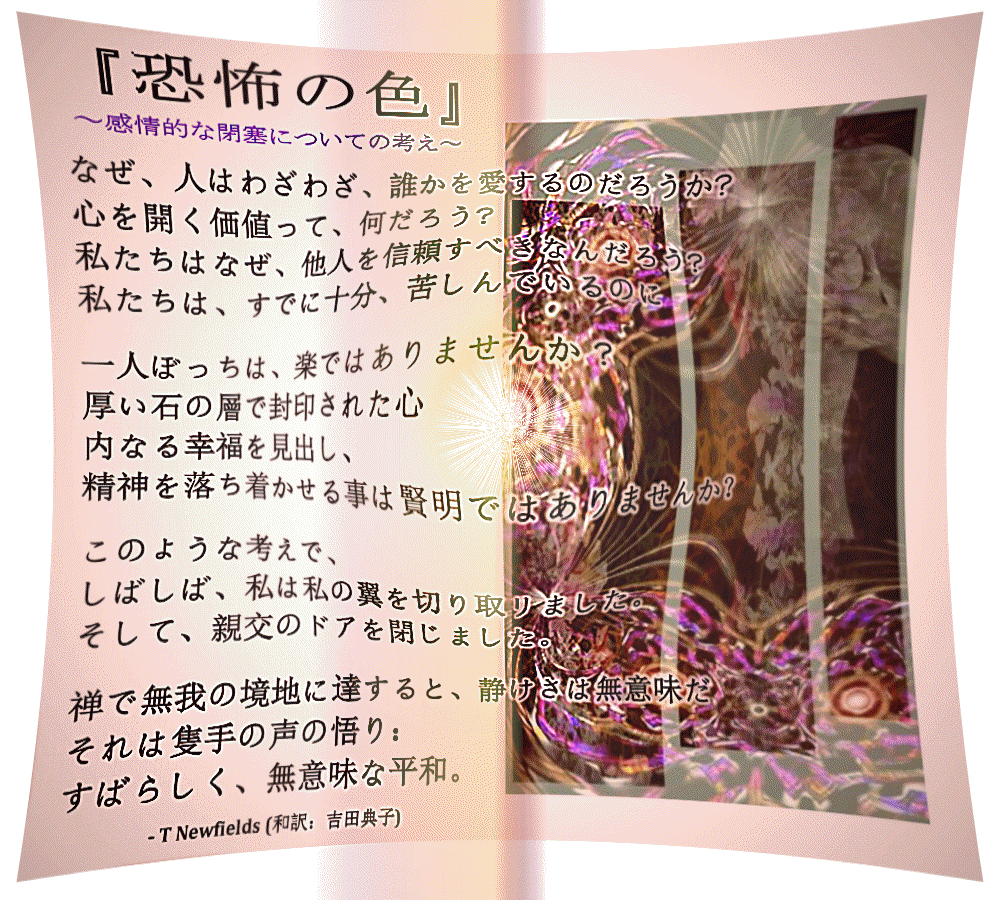 『恐怖の色』
～感情的な閉塞についての考え～
なぜ、人はわざわざ、誰かを愛するのだろうか？
心を開く価値って、何だろう？
私たちはなぜ、他人を信頼すべきなんだろう？
私たちは、すでに十分、苦しんでいるのに
一人ぼっちは、楽ではありませんか？
厚い石の層で封印された心
内なる幸福を見出し、
精神を落ち着かせる事は賢明ではありませんか？
このような考えで、
しばしば、私は私の翼を切り取リました。
そして、親交のドアを閉じました。
禅で無我の境地に達すると、静けさは無意味だ
それは隻手の声の悟り：
すばらしく、無意味な平和。
- T Newfields (和訳：吉田典子)